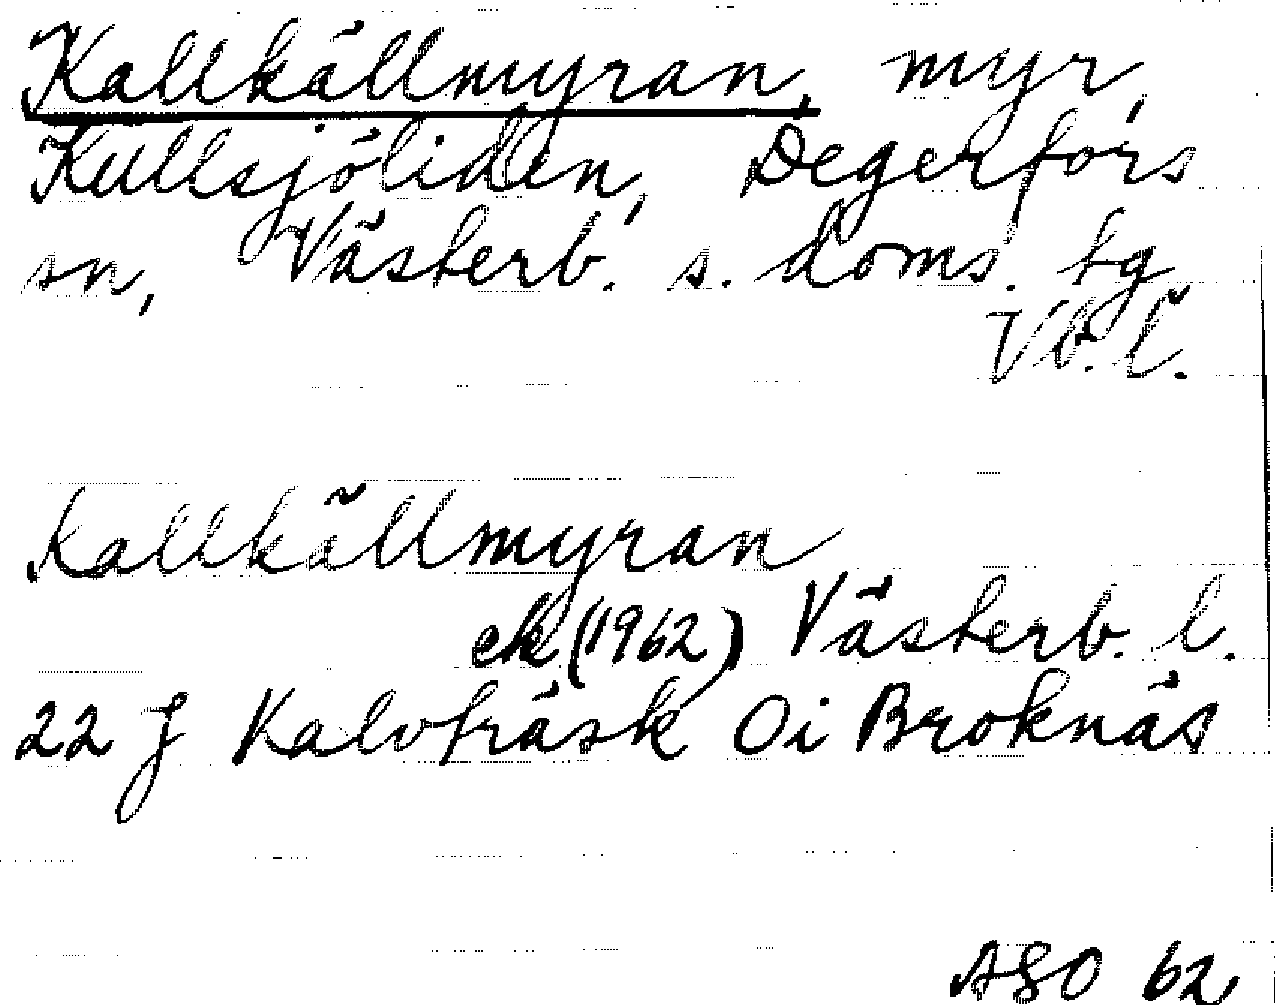 Kallkällmyran, myr,
Kullsjöliden, Degerfors
sn, Västerb. s. doms. tg
Vb. l.
Kallkällmyran
ek (1962) Västerb. l.
22 J Kalvträsk Oi Broknäs
ASO 62